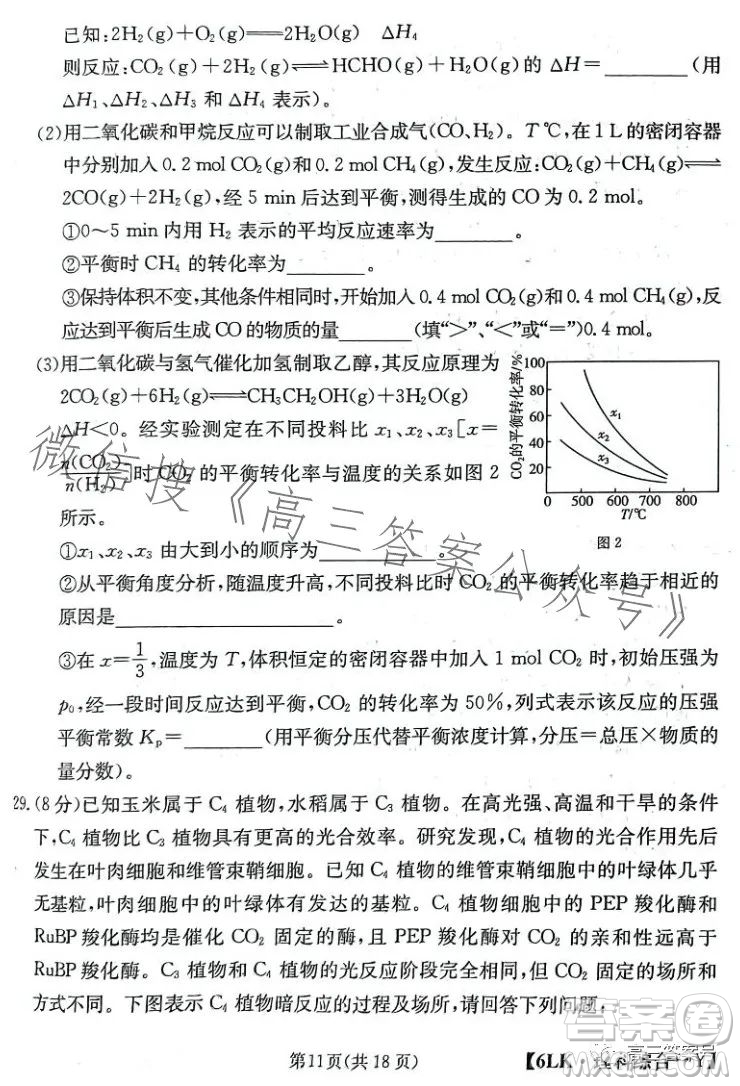 已知:2H₂(g)+O₂(g)═══2H₂O(g)　ΔH₄
则反应:CO₂(g)+2H₂(g)⇌HCHO(g)+H₂O(g)的 ΔH=________(用
ΔH₁、ΔH₂、ΔH₃ 和 ΔH₄ 表示)。
(2)用二氧化碳和甲烷反应可以制取工业合成气(CO、H₂)。T ℃,在 1 L的密闭容器
中分别加入 0.2 mol CO₂(g)和 0.2 mol CH₄(g),发生反应:CO₂(g)+CH₄(g)⇌
2CO(g)+2H₂(g),经 5 min 后达到平衡,测得生成的 CO为 0.2 mol。
①0～5 min内用 H₂ 表示的平均反应速率为________。
②平衡时 CH₄ 的转化率为________。
③保持体积不变,其他条件相同时,开始加入 0.4 mol CO₂(g)和 0.4 mol CH₄(g),反
应达到平衡后生成 CO 的物质的量________(填“>”、“<”或“=”)0.4 mol。
(3)用二氧化碳与氢气催化加氢制取乙醇,其反应原理为
2CO₂(g)+6H₂(g)⇌CH₃CH₂OH(g)+3H₂O(g)
ΔH<0。经实验测定在不同投料比 x₁、x₂、x₃[x=
n(CO₂)/n(H₂)]时 CO₂ 的平衡转化率与温度的关系如图 2
所示。
CO₂的平衡转化率/%
100
80
60
40
20
x₁
x₂
x₃
0 500 600 700 800
T/℃
图 2
①x₁、x₂、x₃ 由大到小的顺序为________。
②从平衡角度分析,随温度升高,不同投料比时 CO₂ 的平衡转化率趋于相近的
原因是________________。
③在 x=1/3,温度为 T,体积恒定的密闭容器中加入 1 mol CO₂ 时,初始压强为
p₀,经一段时间反应达到平衡,CO₂ 的转化率为 50%,列式表示该反应的压强
平衡常数 Kₚ=________(用平衡分压代替平衡浓度计算,分压=总压×物质的
量分数)。
29.(8 分)已知玉米属于 C₄ 植物,水稻属于 C₃ 植物。在高光强、高温和干旱的条件
下,C₄ 植物比 C₃ 植物具有更高的光合效率。研究发现,C₄ 植物的光合作用先后
发生在叶肉细胞和维管束鞘细胞。已知 C₄ 植物的维管束鞘细胞中的叶绿体几乎
无基粒,叶肉细胞中的叶绿体有发达的基粒。C₄ 植物细胞中的 PEP 羧化酶和
RuBP 羧化酶均是催化 CO₂ 固定的酶,且 PEP 羧化酶对 CO₂ 的亲和性远高于
RuBP 羧化酶。C₃ 植物和 C₄ 植物的光反应阶段完全相同,但 CO₂ 固定的场所和
方式不同。下图表示 C₄ 植物暗反应的过程及场所,请回答下列问题:
第11页(共 18 页)
【6LK·理科综合一Y】
微信搜《高三答案公众号》
答案圈
高三答案号